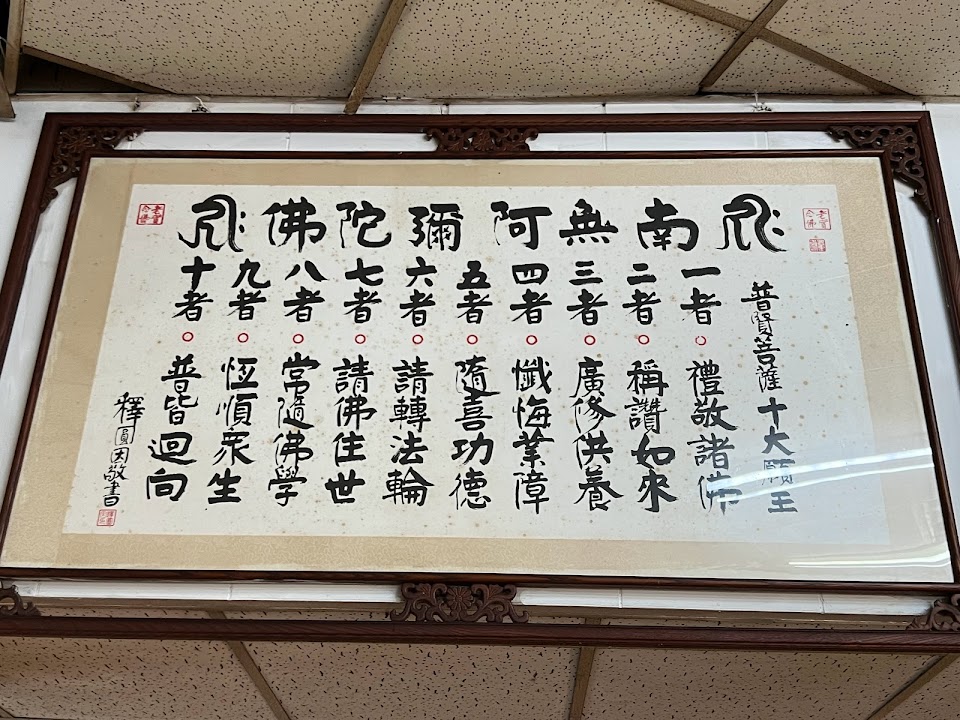 南無阿彌陀佛
普賢菩薩十大願王
一者○禮敬諸佛
二者○稱讚如來
三者○廣修供養
四者○懺悔業障
五者○隨喜功德
六者○請轉法輪
七者○請佛住世
八者○常隨佛學
九者○恆順眾生
十者○普皆迴向
釋圓因敬書
老實念佛
老實念佛